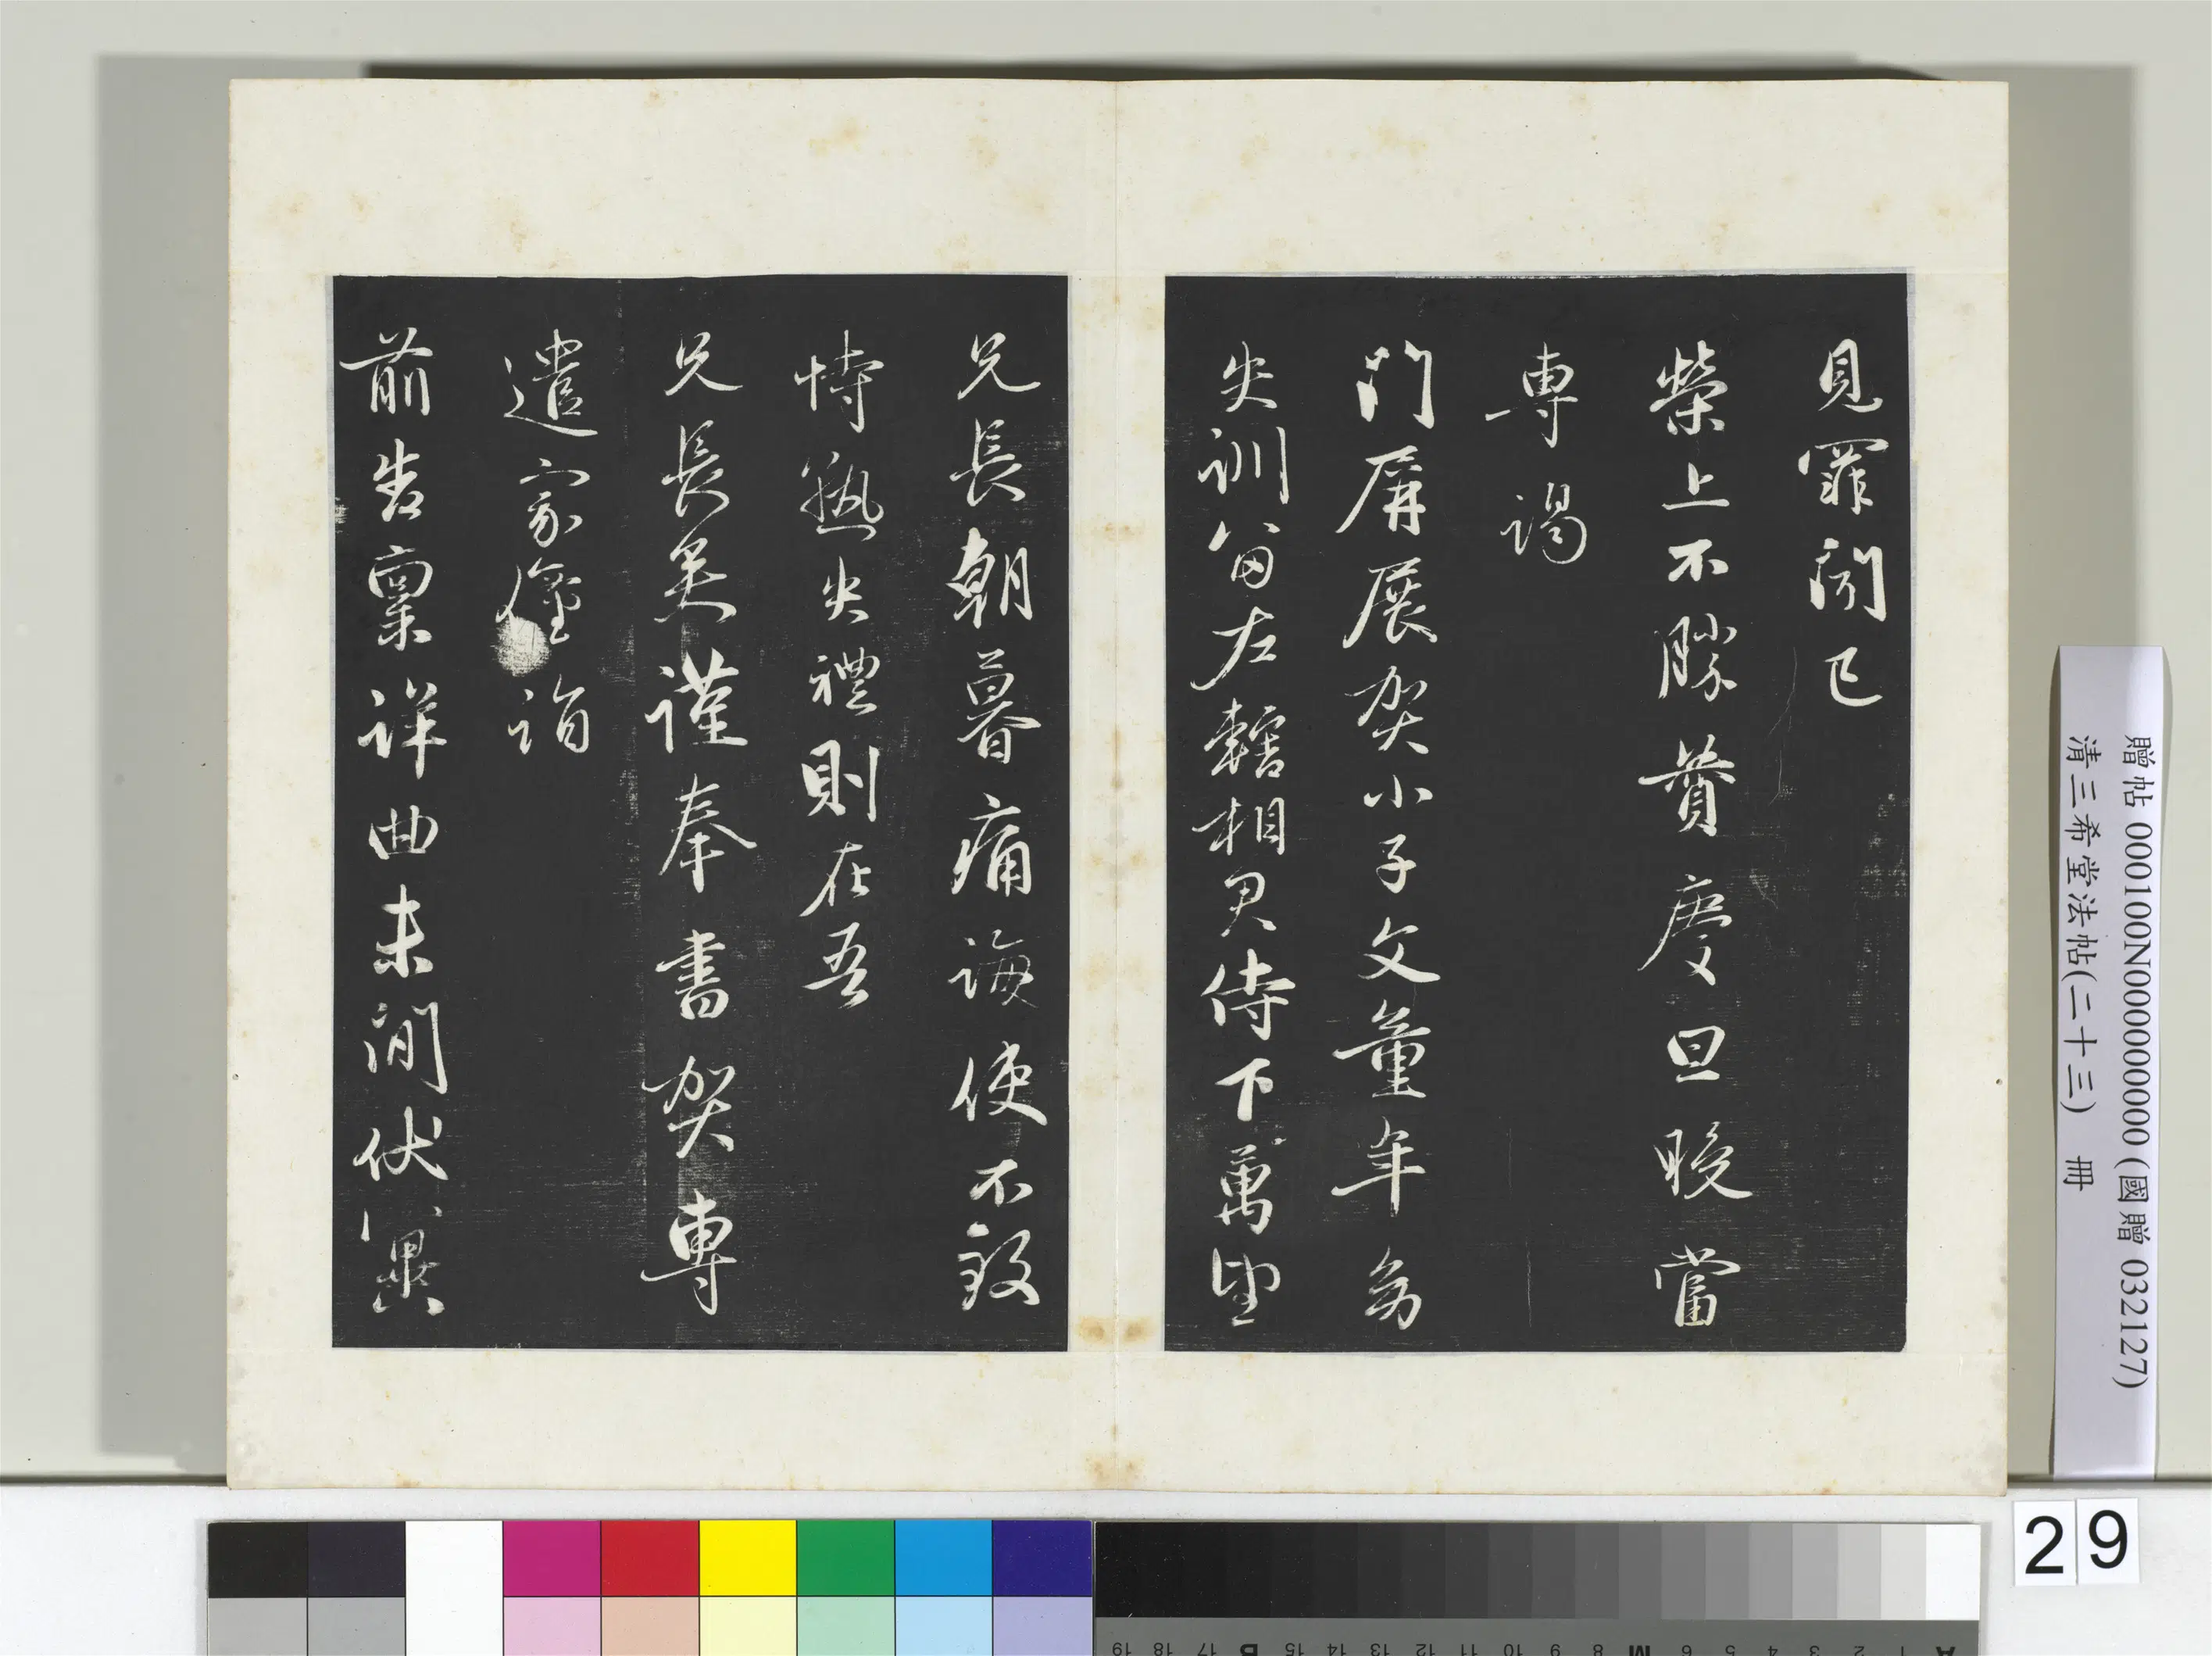 見罪聞已
榮上不勝賛慶旦晚當
專謁
門屏展賀小子文童年幼
失訓留左轄相君侍下萬望
兄長朝暮痛誨使不致
恃熟失禮則在吾
兄長矣謹奉書賀專
遣家僮詣
前告稟詳曲未間伏冀
贈帖 000100N000000000 (國贈 032127)
清三希堂法帖(二十三) 冊
29
A 1 2 3 4 5 6 M 8 9 10 11 12 13 14 15 B 17 18 19